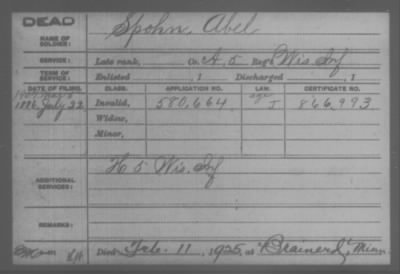 DEAD
NAME OF SOLDIER: Spohn, Abel
SERVICE: Late rank, Co. A, 5 Reg't Wis. Inf
TERM OF SERVICE: Enlisted , 1 Discharged , 1
DATE OF FILING. CLASS. APPLICATION NO. LAW. CERTIFICATE NO.
1886, July 22 Invalid, 580,664 J 866,993
Widow,
Minor,
ADDITIONAL SERVICES: H 5 Wis. Inf
REMARKS:
Died Feb. 11, 1925, at Brainerd, Minn.